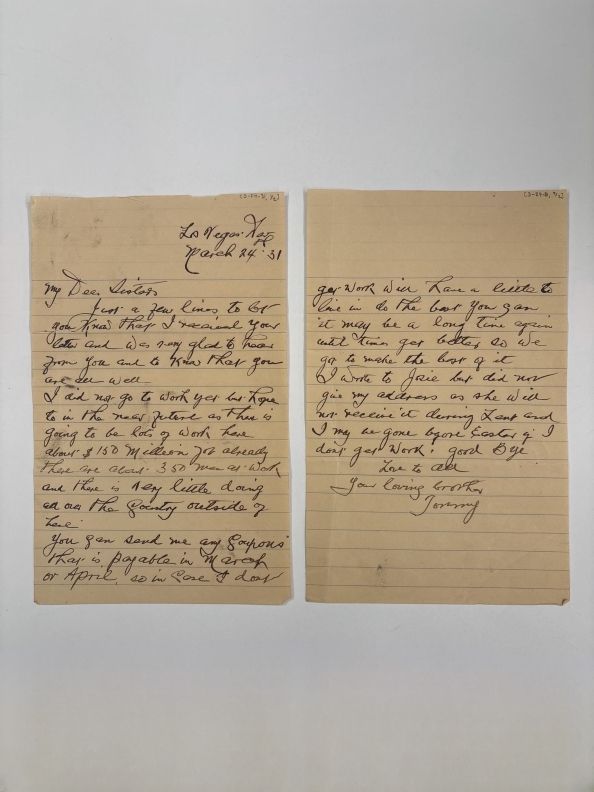 (3-24-31, 1/2)
Los Vegas. Nav
March 24th 31
My Dear Sisters
just a few lines to let
you Know that I received your
letter and was very glad to hear
from you and to Know that you
are all well
I did not go to work yet but hope
to in the near future as there is
going to be lots of work here
about $150 Million Job already
there are about 350 men at work
and there is very little doing
all over the Country outside of
here
You can send me any Coupons
that is payable in March
or April, so in Case I dont
(3-24-31, 2/2)
get work will have a little to
live in do the best you can
it may be a long time again
until times get better so we
got to make the best of it
I wrote to Josie but did not
give my address as she will
not receive it during Lent and
I may be gone before Easter if I
dont get work. good Bye
Love to all
Your loving brother
Tommy